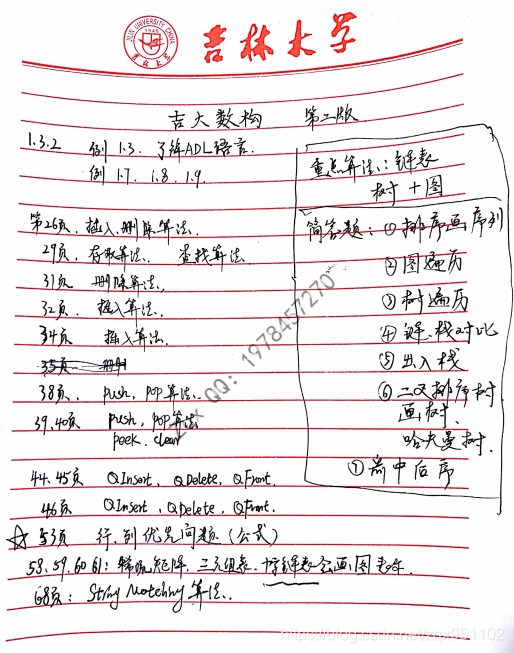 JILIN UNIVERSITY CHINA
1946
吉林大学
吉林大学
吉大数构 第二版
1.3.2 例 1.3. 了解ADL语言.
例 1.7. 1.8. 1.9
第26页. 插入.删除算法.
29页. 存取算法. 查找算法
31页 删除算法.
32页. 插入算法.
34页 插入算法.
35页 删除
38页. push, pop 算法.
39.40页 push, pop算法
peek. clear
44.45页 QInsert, QDelete, QFront.
46页 QInsert, QDelete, QFront.
☆ 53页 行.列优先问题(公式)
58.59.60 61: 稀疏矩阵. 三元组表. 十字链表会画图表示
68页: String Matching 算法.
重点算法: 链表
树 + 图
简答题: ① 排序画序列
② 图遍历
③ 树遍历
④ 链.栈对比
⑤ 出入栈
⑥ 二叉排序树.
画树.
哈夫曼树.
⑦ 前中后序
zqx QQ: 1978457270
https://blog.csdn.net/zqx951102